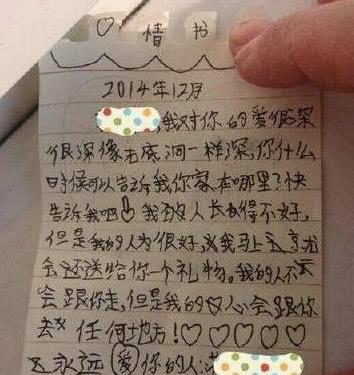 ♡情书
2014年12月
,我对你的爱很深
很深像无底洞一样深,你什么
时候可以告诉我你家在哪里?快
告诉我吧 我的人长得不好,
但是我的人为很好,我马上
会还送给你一个礼物。我的人不
会跟你走,但是我的心会跟你
去 任何地方!♡♡♡♡♡
永远爱你的人: